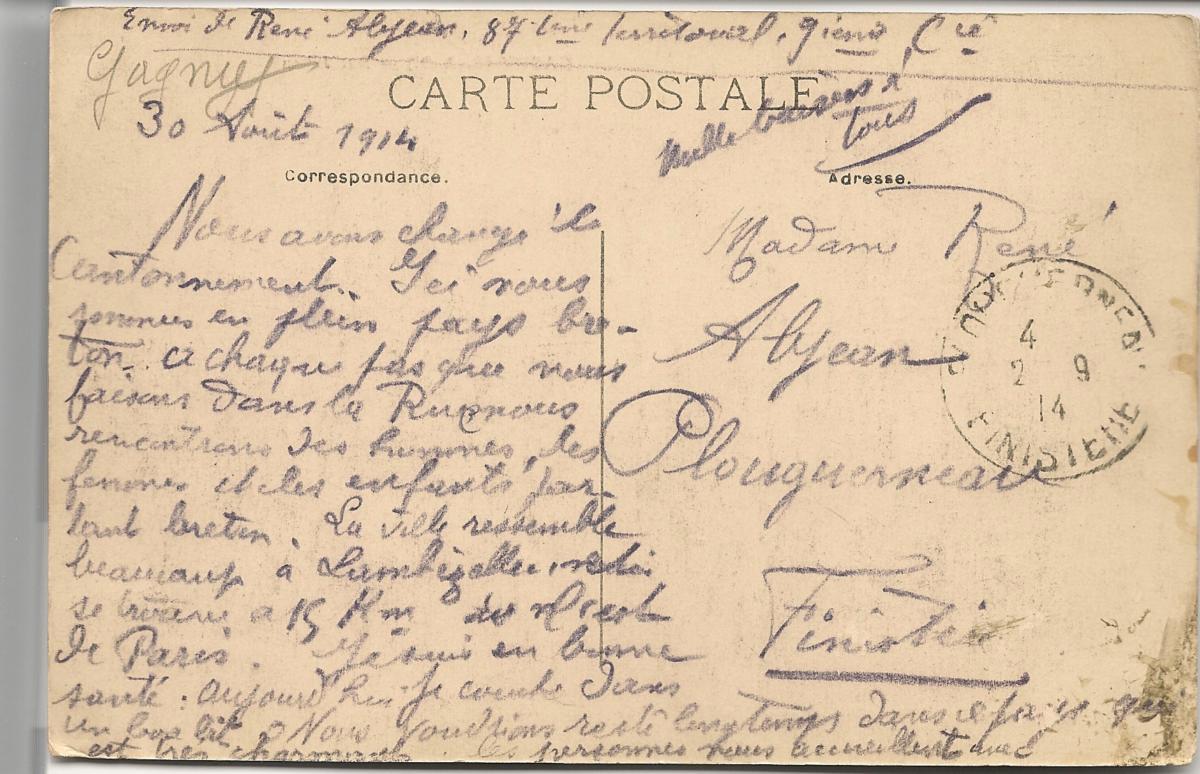 Envoi de René Abjean, 87ième Territorial, 9ième Cie
Gagny
CARTE POSTALE
30 Août 1914
Mille baisers à
tous
Correspondance.
Adresse.
Nous avons changé de
Cantonnement. Ici nous
sommes en plein pays bre-
ton. a chaque pas que nous
faisons dans la Rue nous
rencontrons des hommes, des
femmes et des enfants par
lant breton. La ville ressemble
beaucoup à Lambézellec
se trouve a 15 Km
de Paris. Je suis en bonne
santé. aujourd'hui je couche dans
un bon lit. Nous voudrions resté longtemps dans ce pays qui
est très charmant. les personnes nous accueillent avec
Madame René
Abjean
Plouguerneau
Finistère
4
2 9
14
FINISTERE